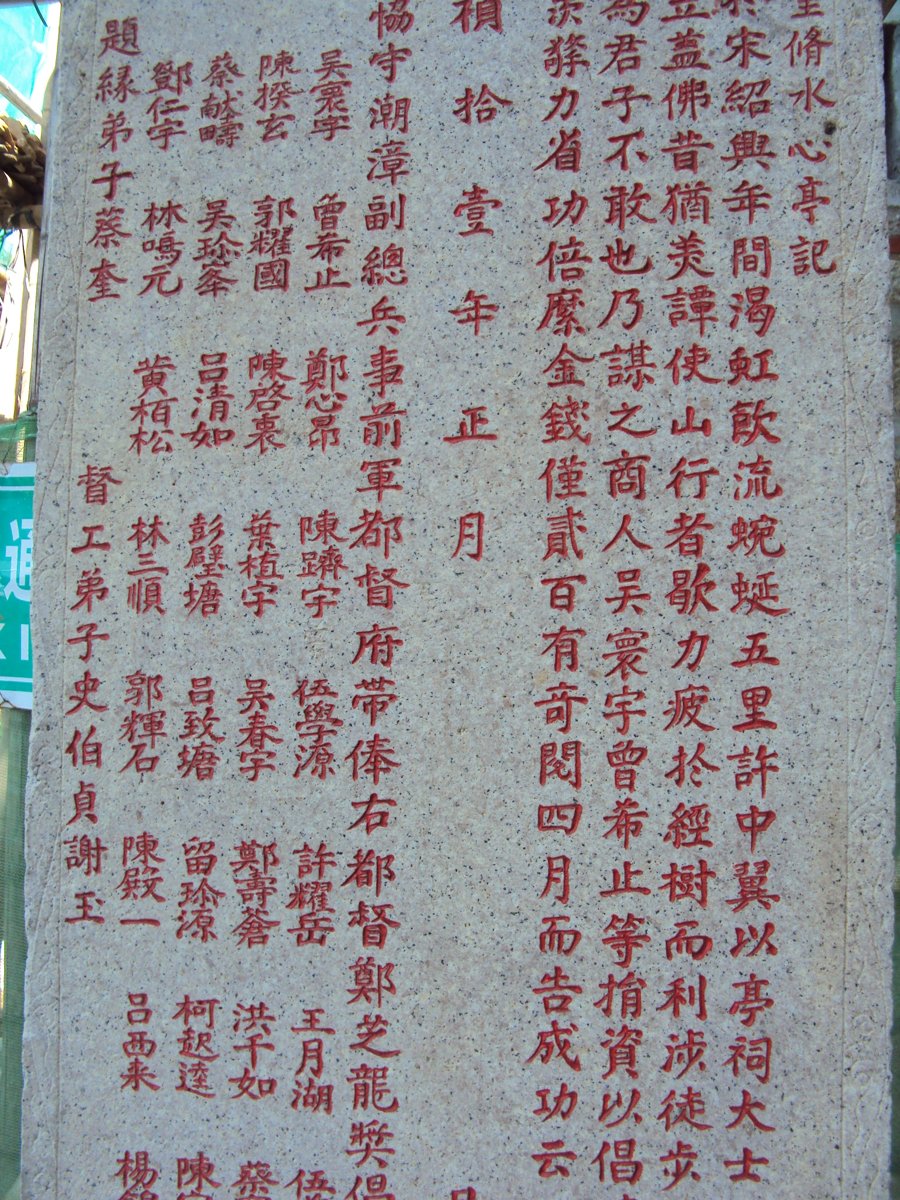 脩水心亭記
宋紹興年間渴虹飲流蜿蜒五里許中翼以亭祠大士
立蓋佛昔猶美譚使山行者歇力疲於經樹而利涉徒步
為君子不敢也乃謀之商人吴寰宇曾希止等捐資以倡
力省功倍縻金錢僅貳百有奇閱四月而告成功云
禎拾壹年正月
協守潮漳副總兵事前軍都督府帶俸右都督鄭芝龍奬倡
吴寰宇 曾希止 鄭心昂 陳躋宇 伍學源 許耀岳 王月湖 伍
陳揆玄 郭耀國 陳啓衷 葉植宇 吴春宇 鄭壽蒼 洪千如 蔡
蔡献疇 吴珍峯 吕清如 彭璧塘 吕致塘 留珍源 柯起逵 陳
鄧仁宇 林鳴元 黄栢松 林三順 郭輝石 陳殿一 吕西来 楊
題縁弟子蔡奎 督工弟子史伯貞謝玉
通